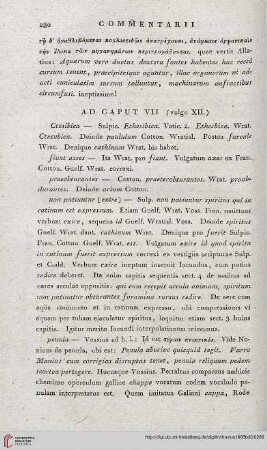 280 COMMENTARII
tius: Aquarum vero ductus dextera fontes habentes huc recta
cursum tenent, praecipitesque aguntur, illac organorum et ad-
acti cuniculatim sursum tolluntur, machinarum anfractibus
circumfusi. ineptissime!
AD CAPUT VII (vulgo XII.)
Ctesibica — Sulpic. Ethesibica. Vatic. 2. Ethesbica. Wrat.
Ctesbica. Deinde paululum Cotton. Wratisl. Postea furcale
Wrat. Denique cathinum Wrat. bis habet.
fiunt asses — Ita Wrat. pro fiant. Vulgatam asses ex Fran.
Cotton. Guelf. Wrat. correxi.
praeobturantes — Cotton. praeterobturantes. Wrat. proob-
durantes. Deinde arium Cotton.
non patiuntur [exire] — Sulp. non patiuntur spiritus qui in
catinum est expressum. Etiam Guelf. Wrat. Voss. Fran. omittunt
verbum exire, sequens id Guelf. Wratisl. Voss. Deinde spiritus
Guelf. Wrat. dant. cathinum Wrat. Denique pro fuerit Sulpic.
Fran. Cotton. Guelf. Wrat. est. Vulgatam exire id quod spiritu
in catinum fuerit expressum correxi ex vestigiis scripturae Sulp.
et Codd. Verbum exire ineptum inseruit Iocundus, cum potius
redire deberet. Ita enim capitis sequentis sect. 4 de assibus ad
arces arculae oppositis: qui cum recepit arcula animam, spiritum
non patiuntur obturantes foraminum cursus redire. De aere cum
aqua sociato, in et cum eadem expresso, ubi compressionis vi
aquam per tubam eiaculetur spiritus, loquitur etiam sect. 3 huius
capitis. Igitur merito Iocundi interpolationem reiecimus.
penula — Vossius ad h. l.: Id est πῶμα πνιγέως. Vide No-
nium de penula, ubi est: Penula abusive quicquid tegit. Varro
Manio: cum corrigias disruptas tenet, penula reliquum pedem
scortea pertegere. Hucusque Vossius. Perraltus comparans ambicis
chemicae operculum gallice chappe vocatum eodem vocabulo pe-
nulam interpretatus est. Quem imitatus Galiani cappa, Rode